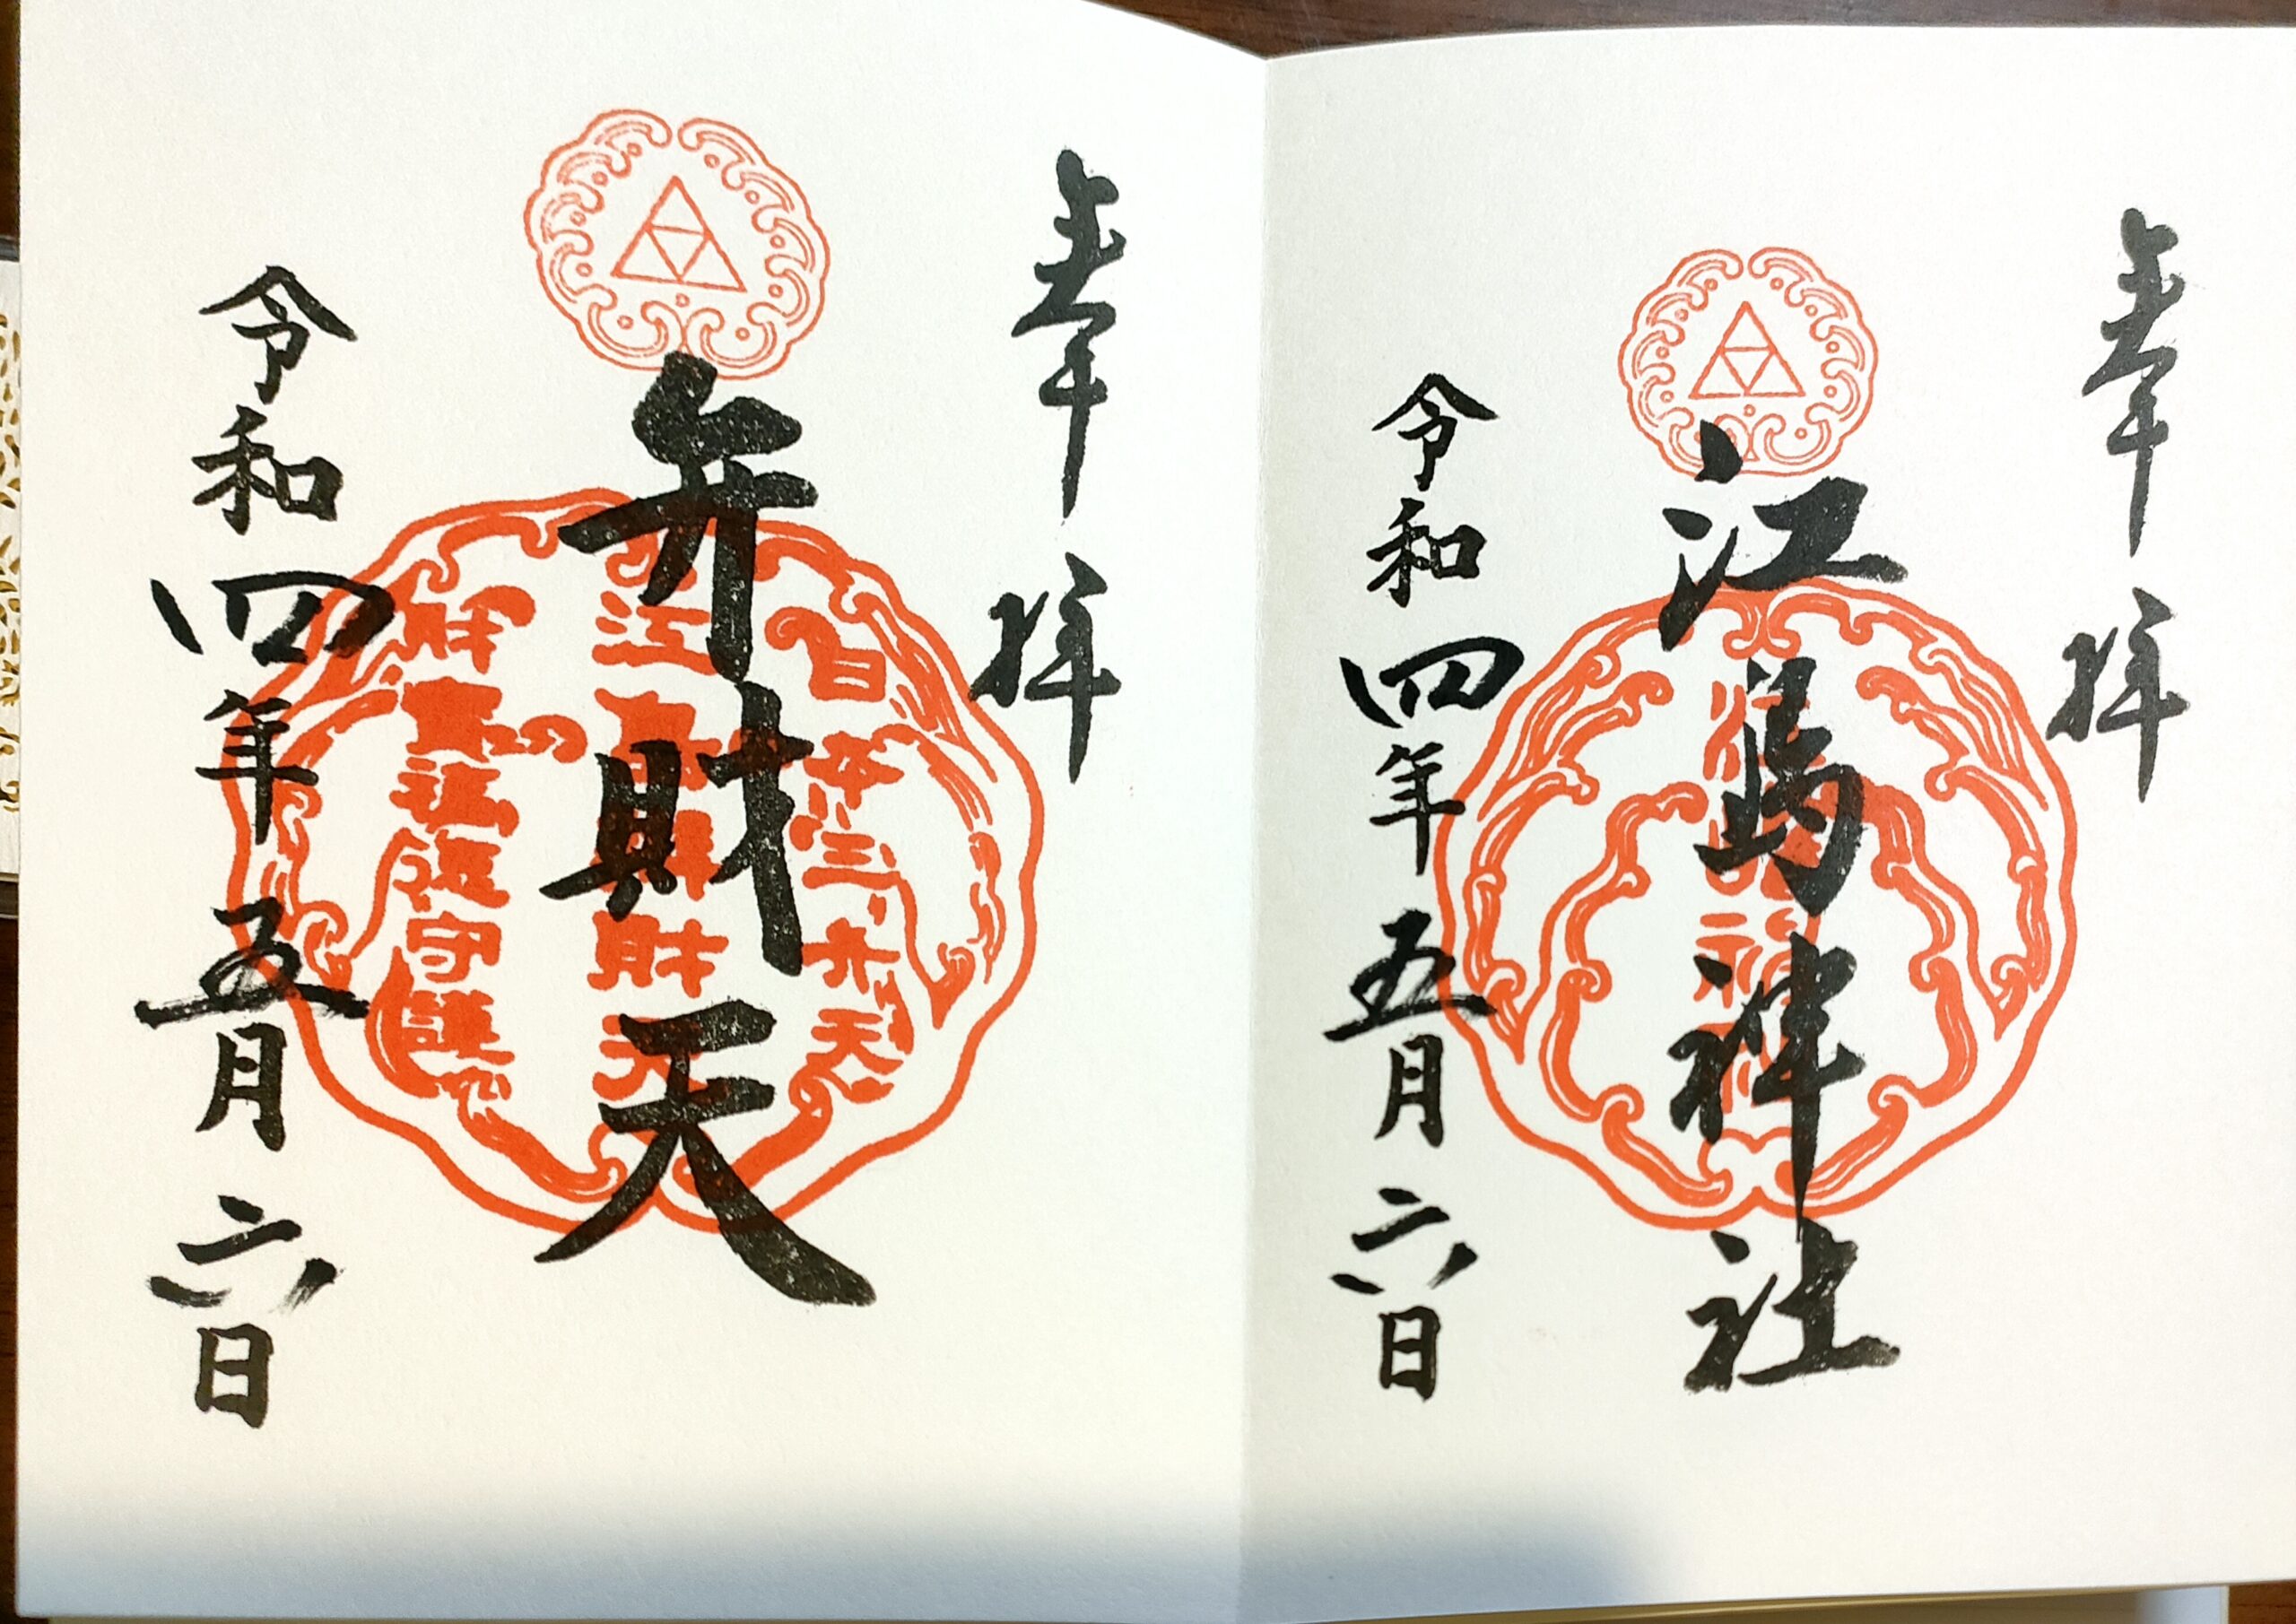 奉拝
江島神社
令和四年五月六日
奉拝
弁財天
日本三弁天
江島辨財天
財寳福徳守護
令和四年五月六日